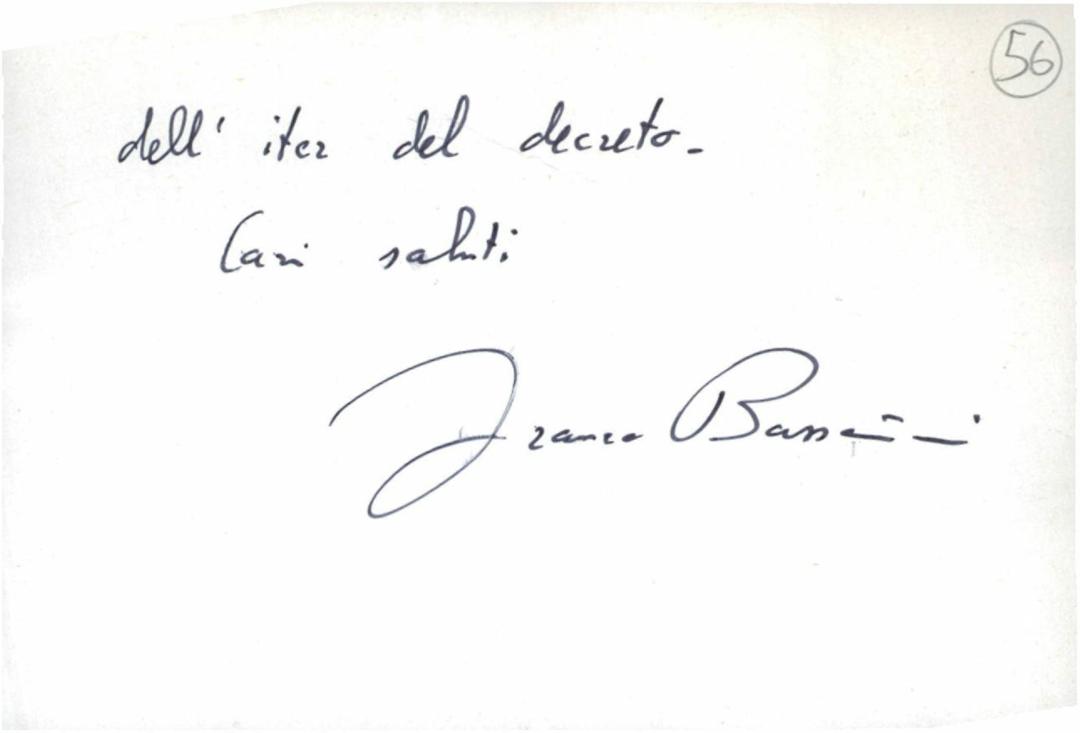 56
dell' iter del decreto.
Cari saluti
Franco Bassanini